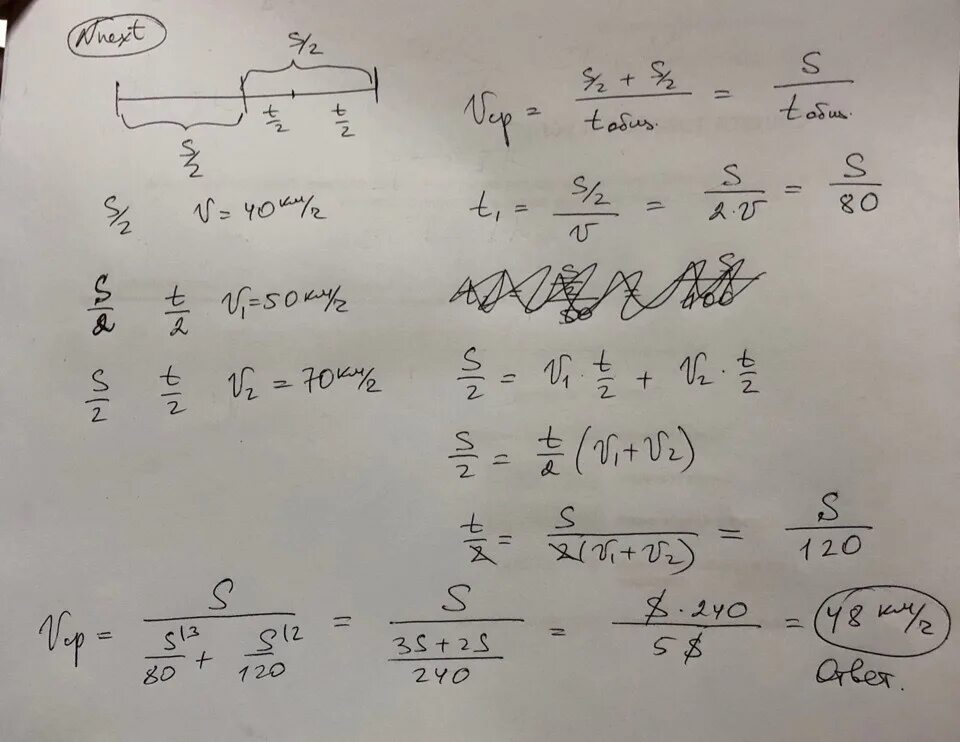 Nnext
S/2
t/2 t/2
S/2
Vср = (S/2 + S/2)/tобщ. = S/tобщ.
S/2 V = 40 км/г
t₁ = (S/2)/V = S/(2·V) = S/80
S/2 t/2 V₁ = 50 км/г
S/2 t/2 V₂ = 70 км/г
S/2 = V₁ · t/2 + V₂ · t/2
S/2 = t/2 (V₁ + V₂)
t/2 = S/(2(V₁ + V₂)) = S/120
Vср = S/(S\3/80 + S\2/120) = S/((3S + 2S)/240) = S · 240/5S = 48 км/г
Ответ.